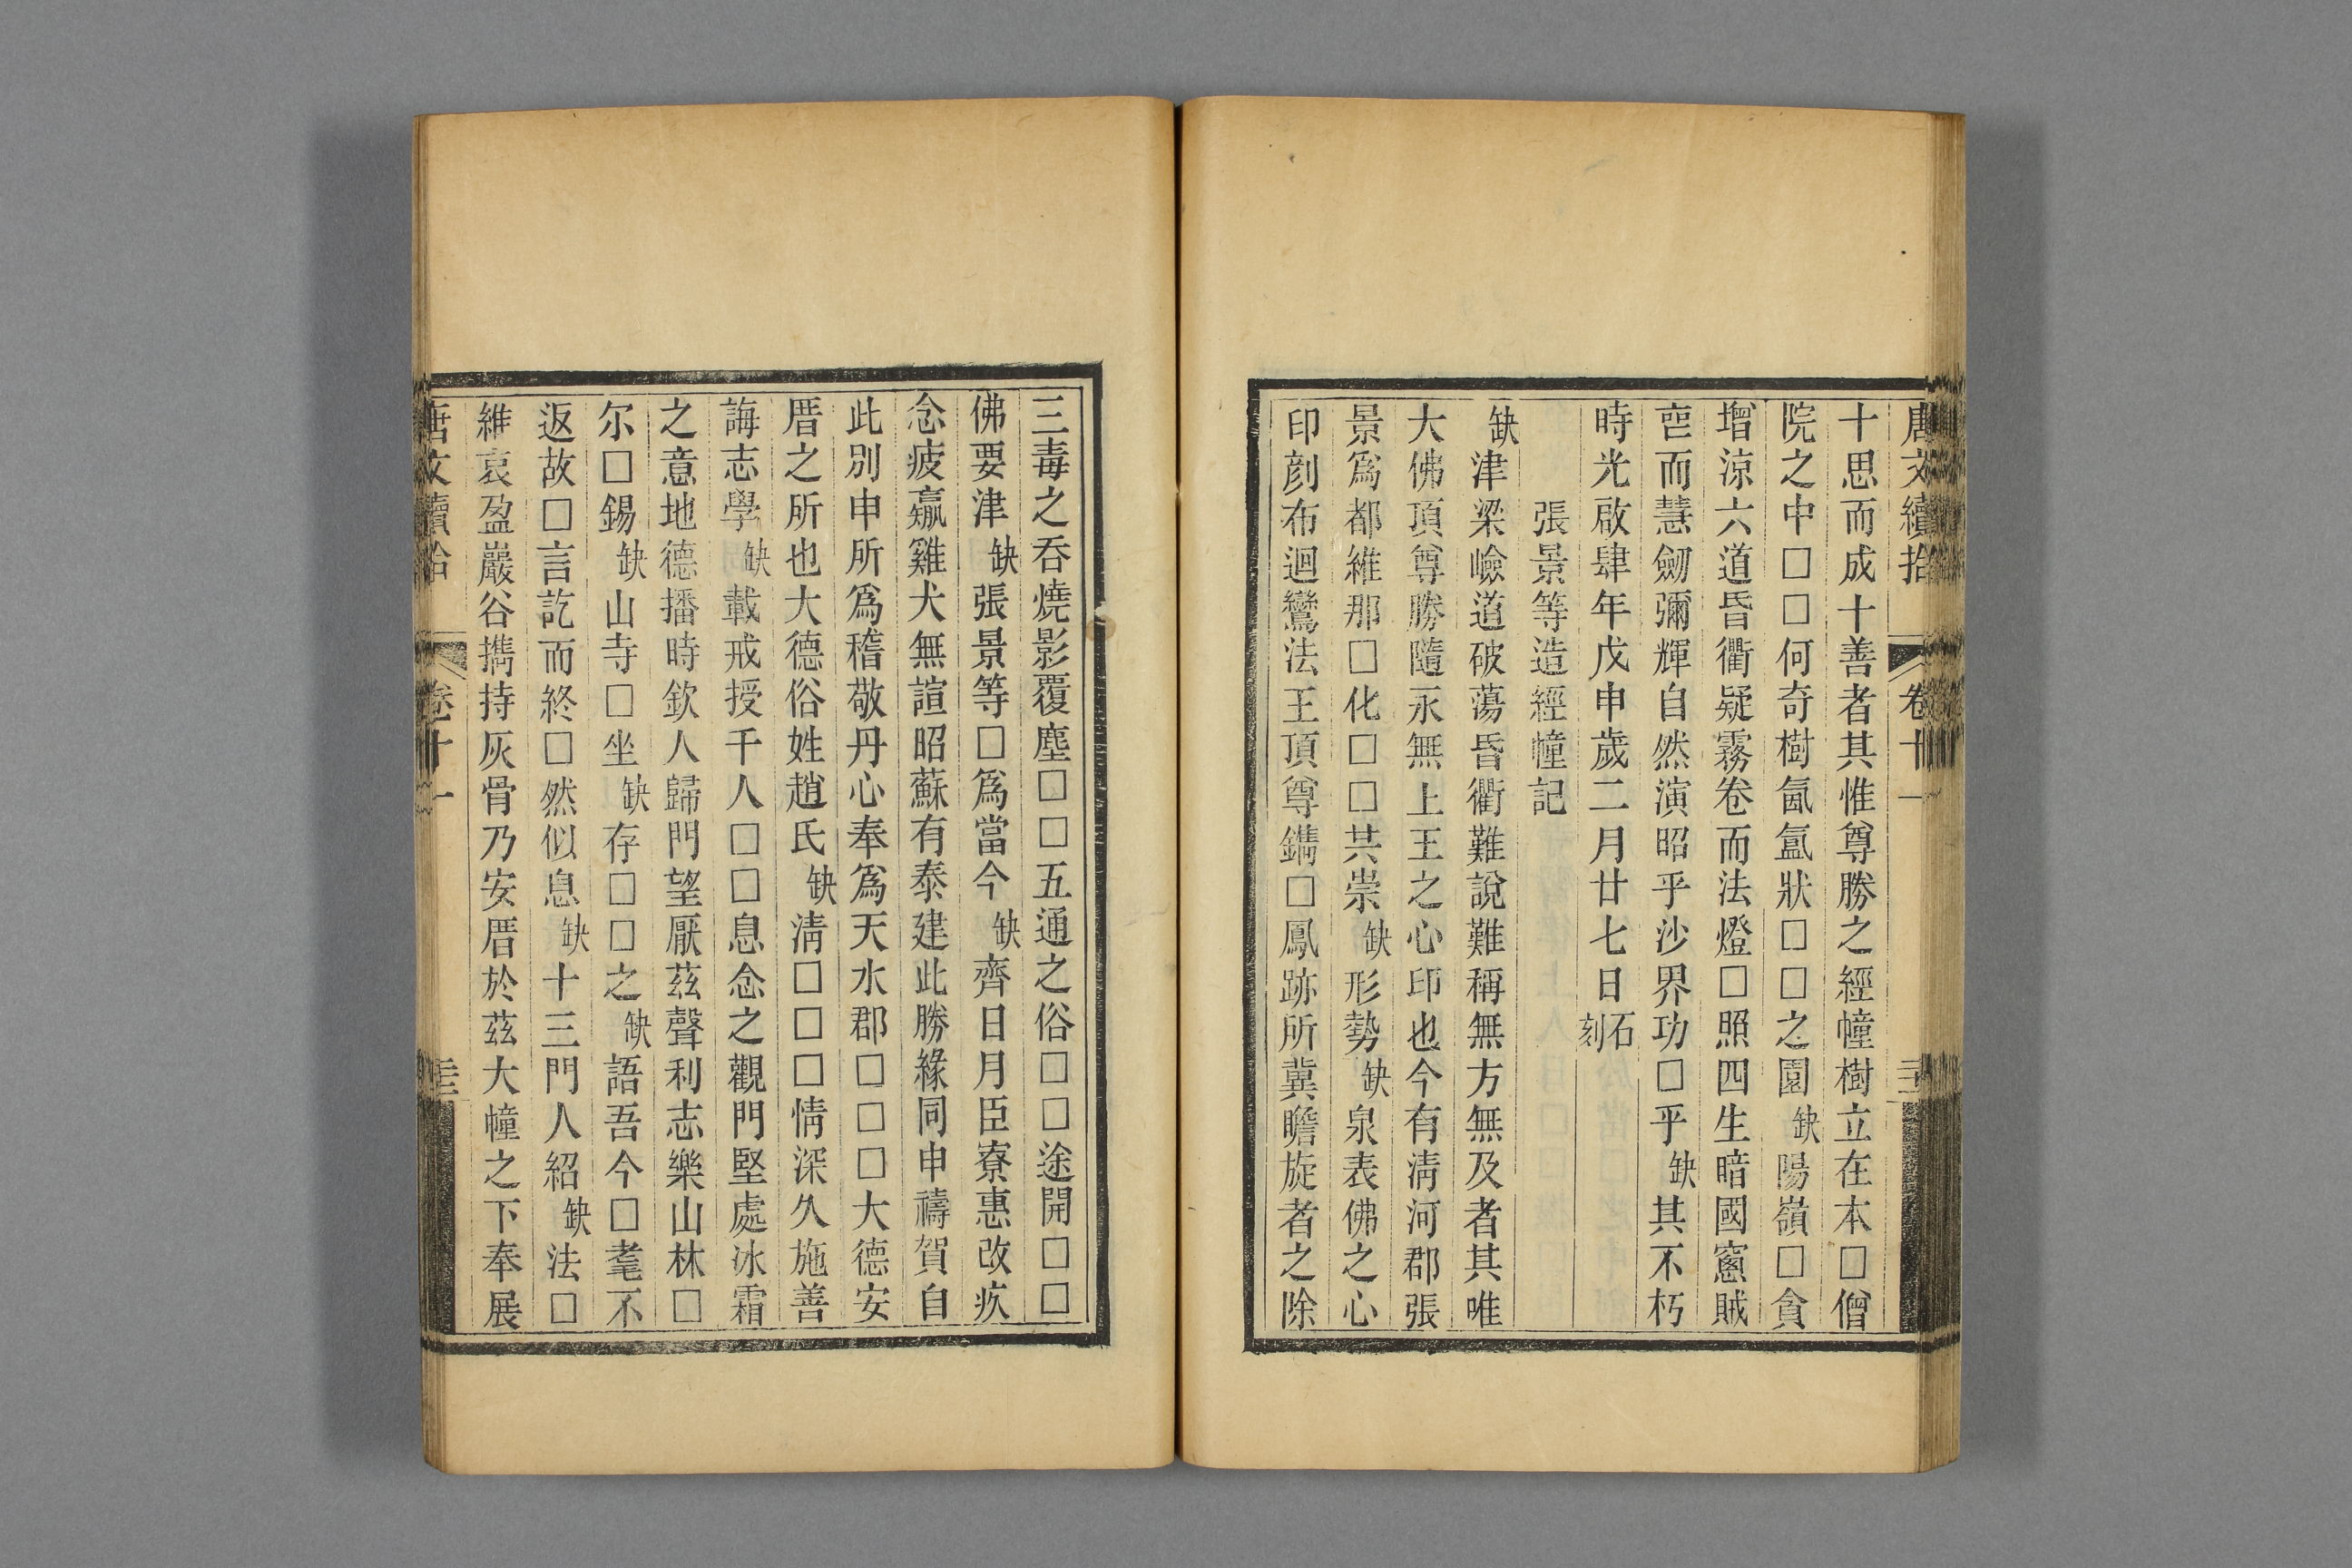 唐文續拾 卷十一
十思而成十善者其惟尊勝之經幢樹立在本□僧
院之中□□何奇樹氤氳狀□□之園缺陽嶺□貪
增涼六道昏衢疑霧卷而法燈□照四生暗國窻賊
亾而慧劒彌輝自然演昭乎沙界功□乎缺其不朽
時光啟肆年戊申歲二月廿七日石刻
張景等造經幢記
缺津梁嶮道破蕩昏衢難說難稱無方無及者其唯
大佛頂尊勝隨永無上王之心印也今有淸河郡張
景爲都維那□化□□共崇缺形勢缺泉表佛之心
印刻布迴鸞法王頂尊鐫□鳳跡所冀瞻旋者之除
三毒之呑燒影覆塵□□五通之俗□□途開□□
佛要津缺張景等□爲當今缺齊日月臣寮惠改疚
念疲羸雞犬無諠昭蘇有泰建此勝緣同申禱賀自
此別申所爲稽敬丹心奉爲天水郡□□□大德安
厝之所也大德俗姓趙氏缺淸□□□情深久施善
誨志學缺載戒授千人□□息念之觀門堅處冰霜
之意地德播時欽人歸門望厭茲聲利志樂山林□
尔□錫缺山寺□坐缺存□□之缺語吾今□耄不
返故□言訖而終□然似息缺十三門人紹缺法□
維哀盈巖谷擕持灰骨乃安厝於茲大幢之下奉展
唐文續拾 卷十一